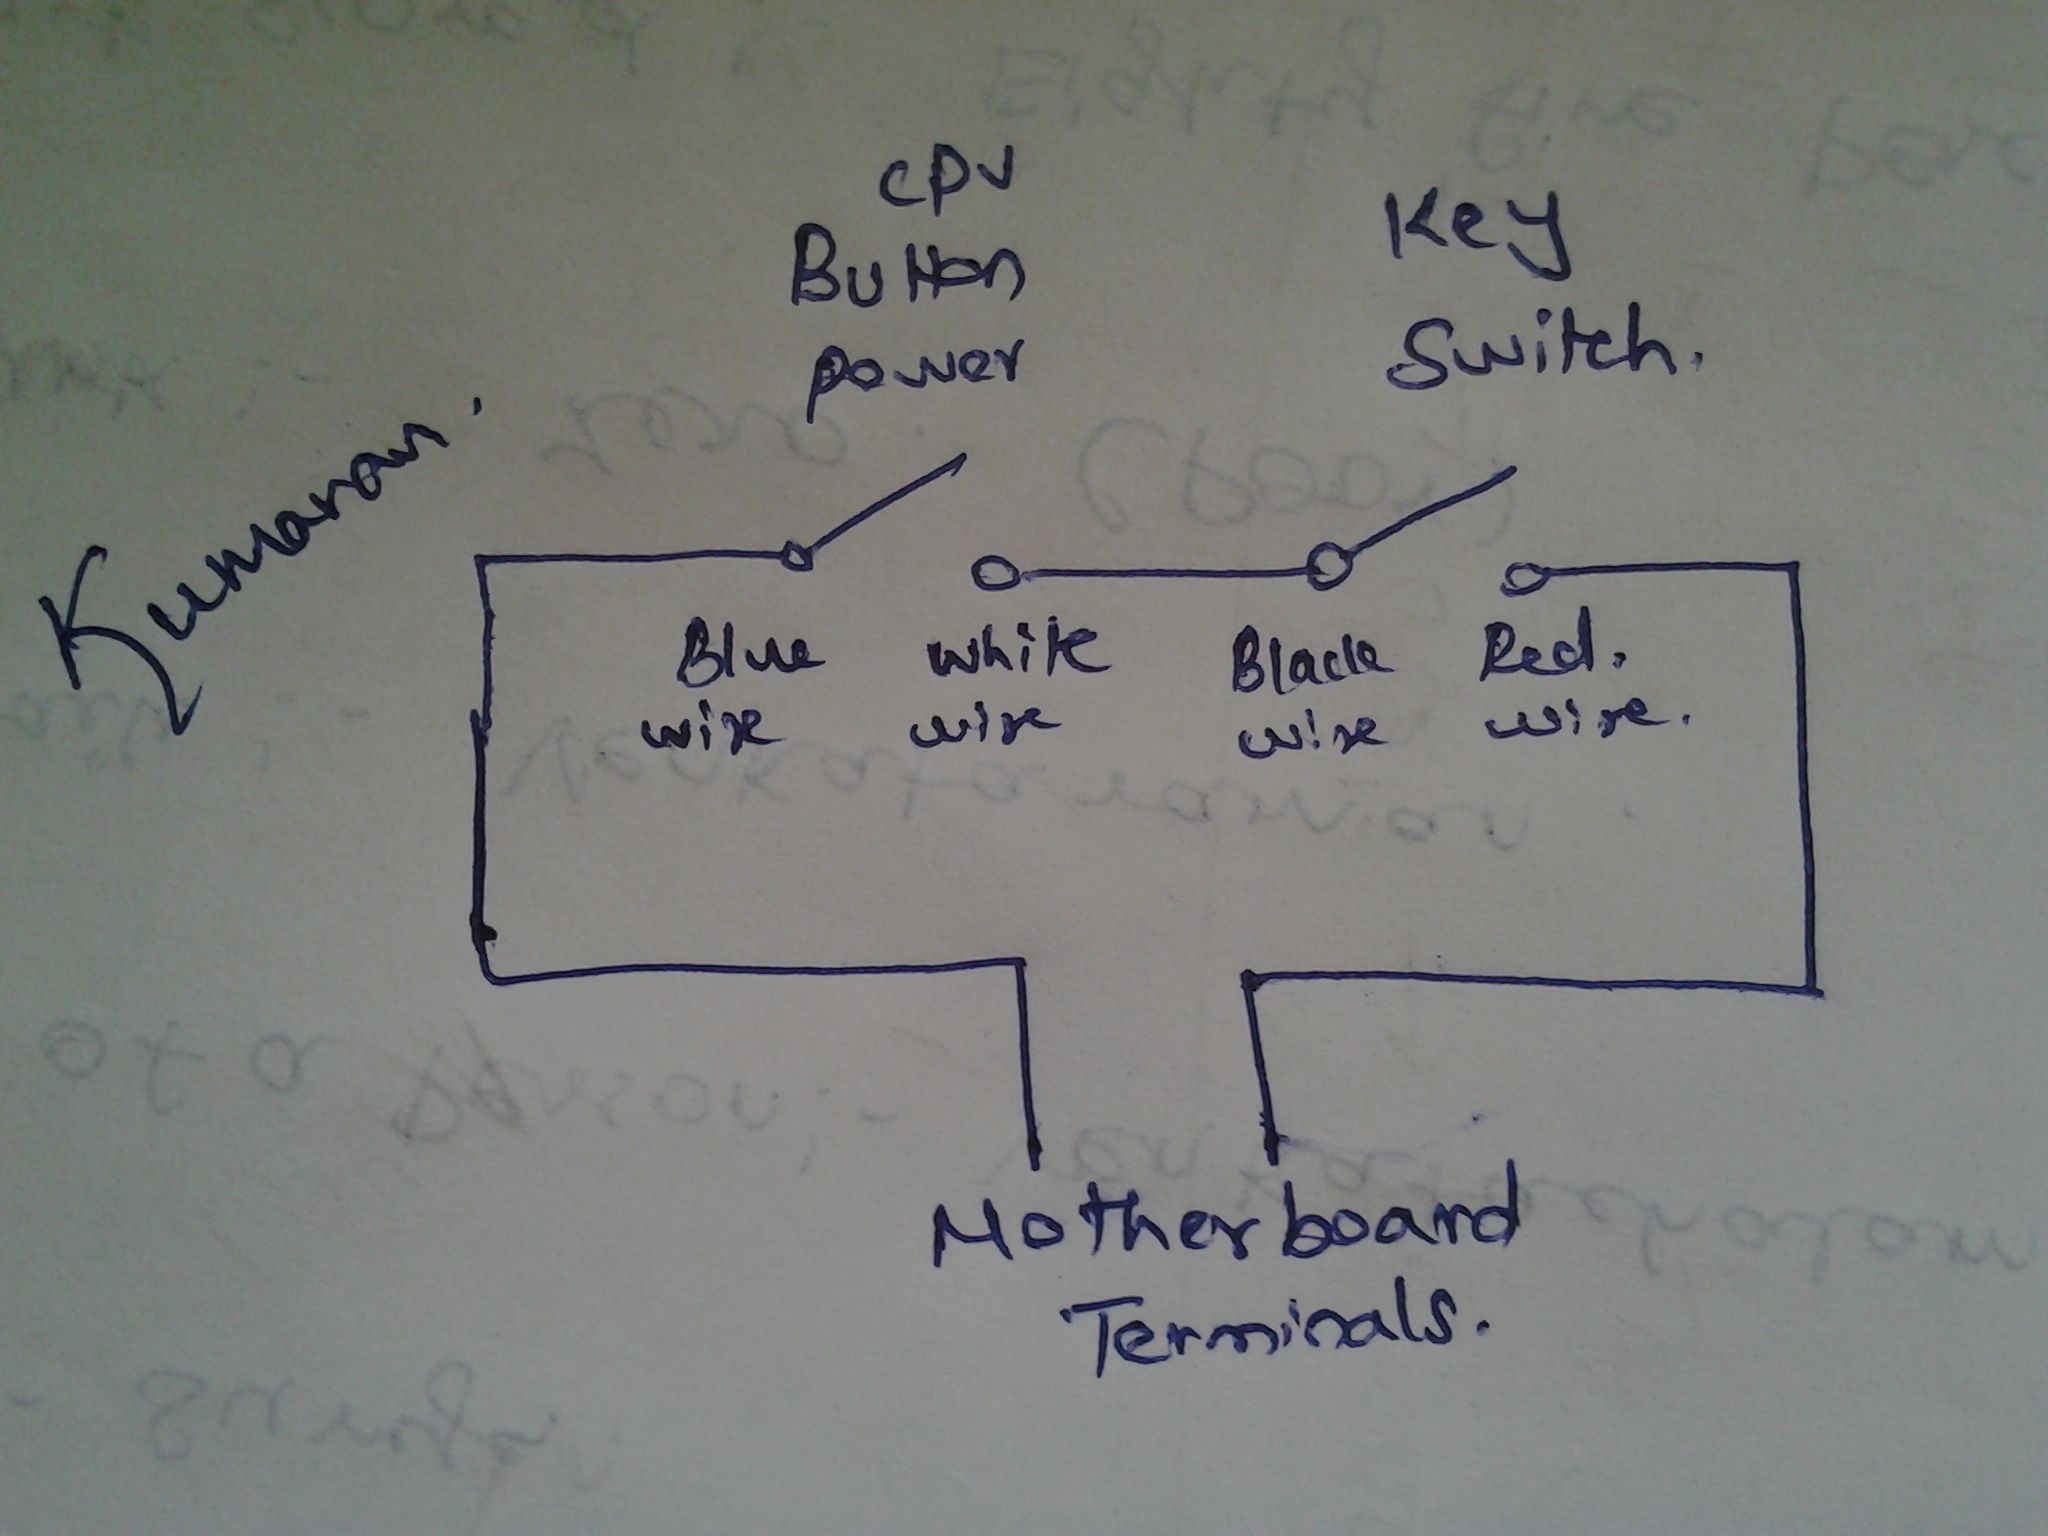 CPU
Button
power
Key
Switch.
Kumaran.
Blue
wire
white
wire
Black
wire
Red.
wire.
Motherboard
Terminals.